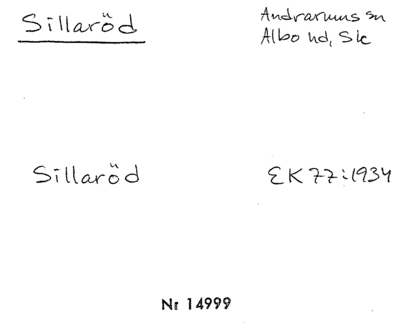 Sillaröd
Andrarums sn
Albo hd, Sk
Sillaröd
EK 77:1934
Nr 14999